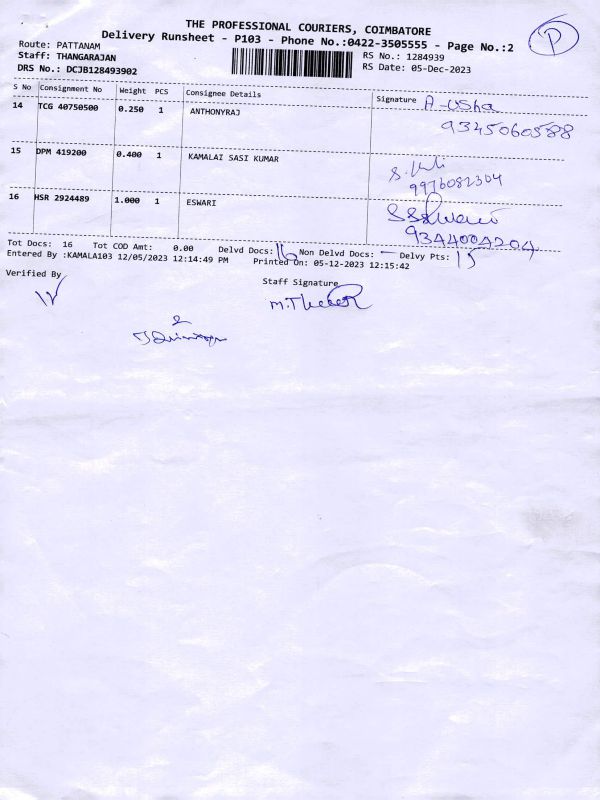 THE PROFESSIONAL COURIERS, COIMBATORE
Delivery Runsheet - P103 - Phone No.:0422-3505555 - Page No.:2
P
Route: PATTANAM
RS No.: 1284939
Staff: THANGARAJAN
RS Date: 05-Dec-2023
DRS No.: DCJB128493902
S No Consignment No Weight PCS Consignee Details Signature
14 TCG 40750500 0.250 1 ANTHONYRAJ A-usha
9345060588
15 DPM 419200 0.400 1 KAMALAI SASI KUMAR
9976082304
16 HSR 2924489 1.000 1 ESWARI
9344004204
Tot Docs: 16 Tot COD Amt: 0.00 Delvd Docs: 16 Non Delvd Docs: - Delvy Pts: 15
Entered By :KAMALA103 12/05/2023 12:14:49 PM Printed On: 05-12-2023 12:15:42
Verified By
Staff Signature